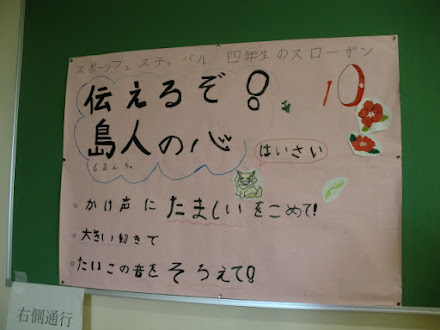 スポーツフェスティバル 四年生のスローガン
伝えるぞ!
10
島人の心
しまんちゅ
はいさい
かけ声にたましいをこめて!
大きい動きで
たいこの音をそろえて!
右側通行